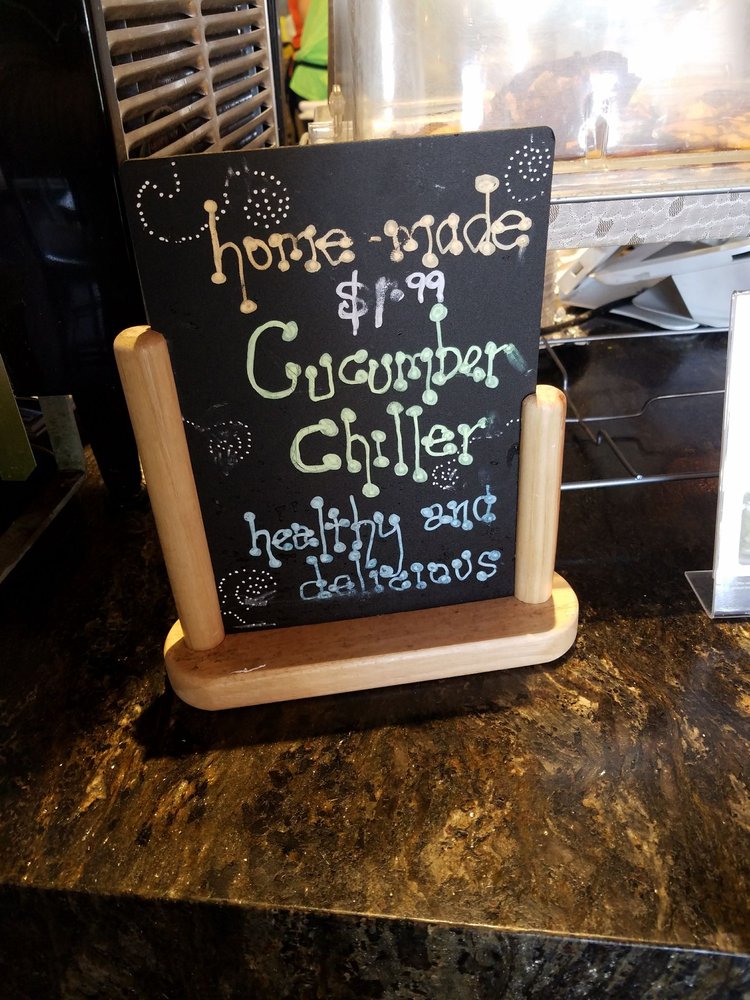 home-made
$1.99
Cucumber
Chiller
healthy and
delicious